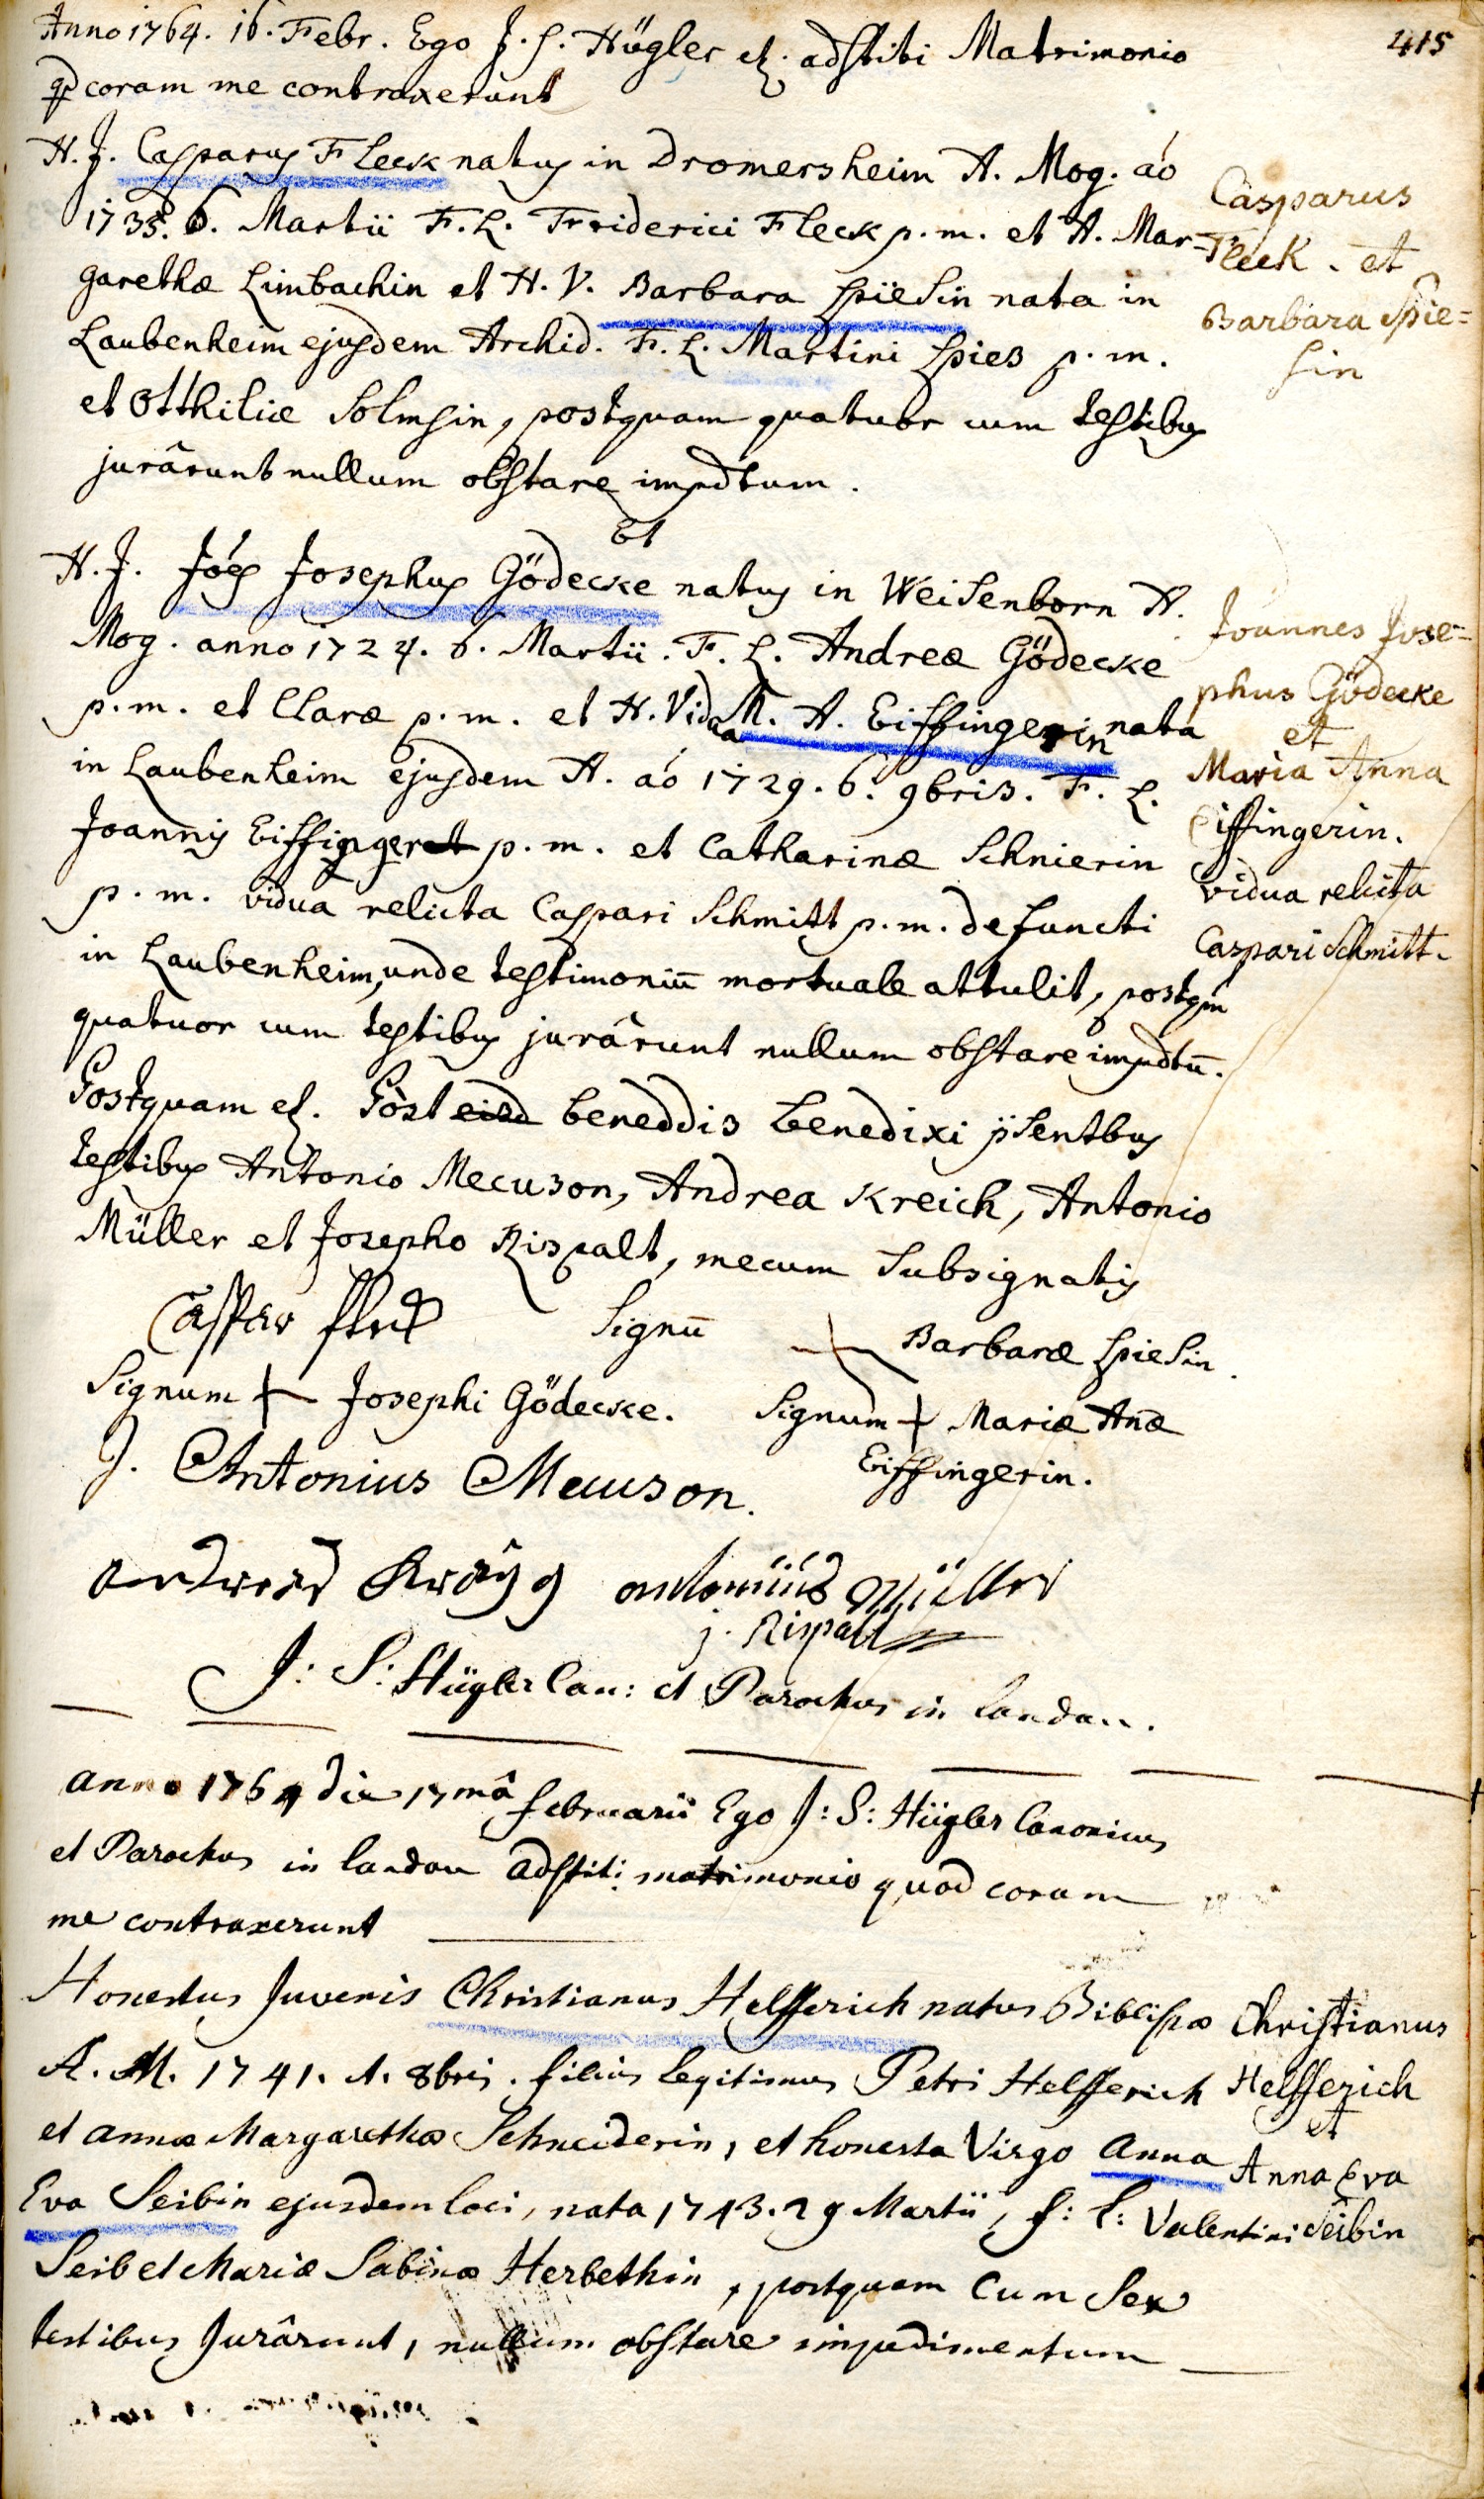 415
Anno 1764. 16. Febr. Ego J. S. Hügler etz. adstiti Matrimonio
qd coram me contraxerunt
H. J. Casparus Fleck natus in Dromersheim A. Mog. aó
1735. 6. Martii F. L. Friderici Fleck p. m. et A. Mar-
garethæ Limbachin et H. V. Barbara Spiesin nata in
Laubenheim ejusdem Archid. F. L. Martini Spies p. m.
et Otthiliæ Solmsin, postquam quatuor cum testibus
jurârunt nullum obstare impdtum.
Casparus
Fleck. et
Barbara Spie=
sin
Et
H. J. Jóes Josephus Gödecke natus in Weisenborn A.
Mog. anno 1724. 6. Martii. F. L. Andreæ Gödecke
p. m. et Claræ p. m. et H. Vidua M. A. Eiffingerin nata
in Laubenheim ejusdem A. aó 1729. 6. 9bris. F. L.
Joannis Eiffinger p. m. et Catharinæ Schnierin
p. m. vidua relicta Caspari Schmitt p. m. defuncti
in Laubenheim, unde testimoniū mortuale attulit, postqm
quatuor cum testibus jurârunt nullum obstare impdtū.
Joannes Jose=
phus Gödecke
et
Maria Anna
Eiffingerin.
vidua relicta
Caspari Schmitt.
Postquam etz. Pòst beneddis benedixi p̈sentbus
testibus Antonio Mecuson, Andrea Kreich, Antonio
Müller et Josepho Rispalt, mecum subsignatis
Caspar fleck Signū + Barbaræ Spiesin.
Signum + Josephi Gödecke. Signum + Mariæ Anæ
Eiffingerin.
J. Antonius Mecuson.
andreas antonius Müller
j. Rispalt
J: S: Hügler Can: et Parochus in landau.
anno 1764 die 17mâ februarii Ego J: S: Hügler Canonicus
et Parochus in landau adstiti matrimonio quod coram
me contraxerunt
Honestus Juvenis Christianus Helfferich natus Biblisæ
A. M. 1741. 1. 8bris. filius legitimus Petri Helfferich
et annæ Margarethæ Schneiderin, et honesta Virgo Anna
Eva Seibin ejusdem loci, nata 1743. 29 Martii, f: l: Valentini
Seib et Mariæ Sabinæ Herbethin, postquam cum sex
testibus Jurârunt, nullum obstare impedimentum
Christianus
Helfferich
et
Anna Eva
Seibin